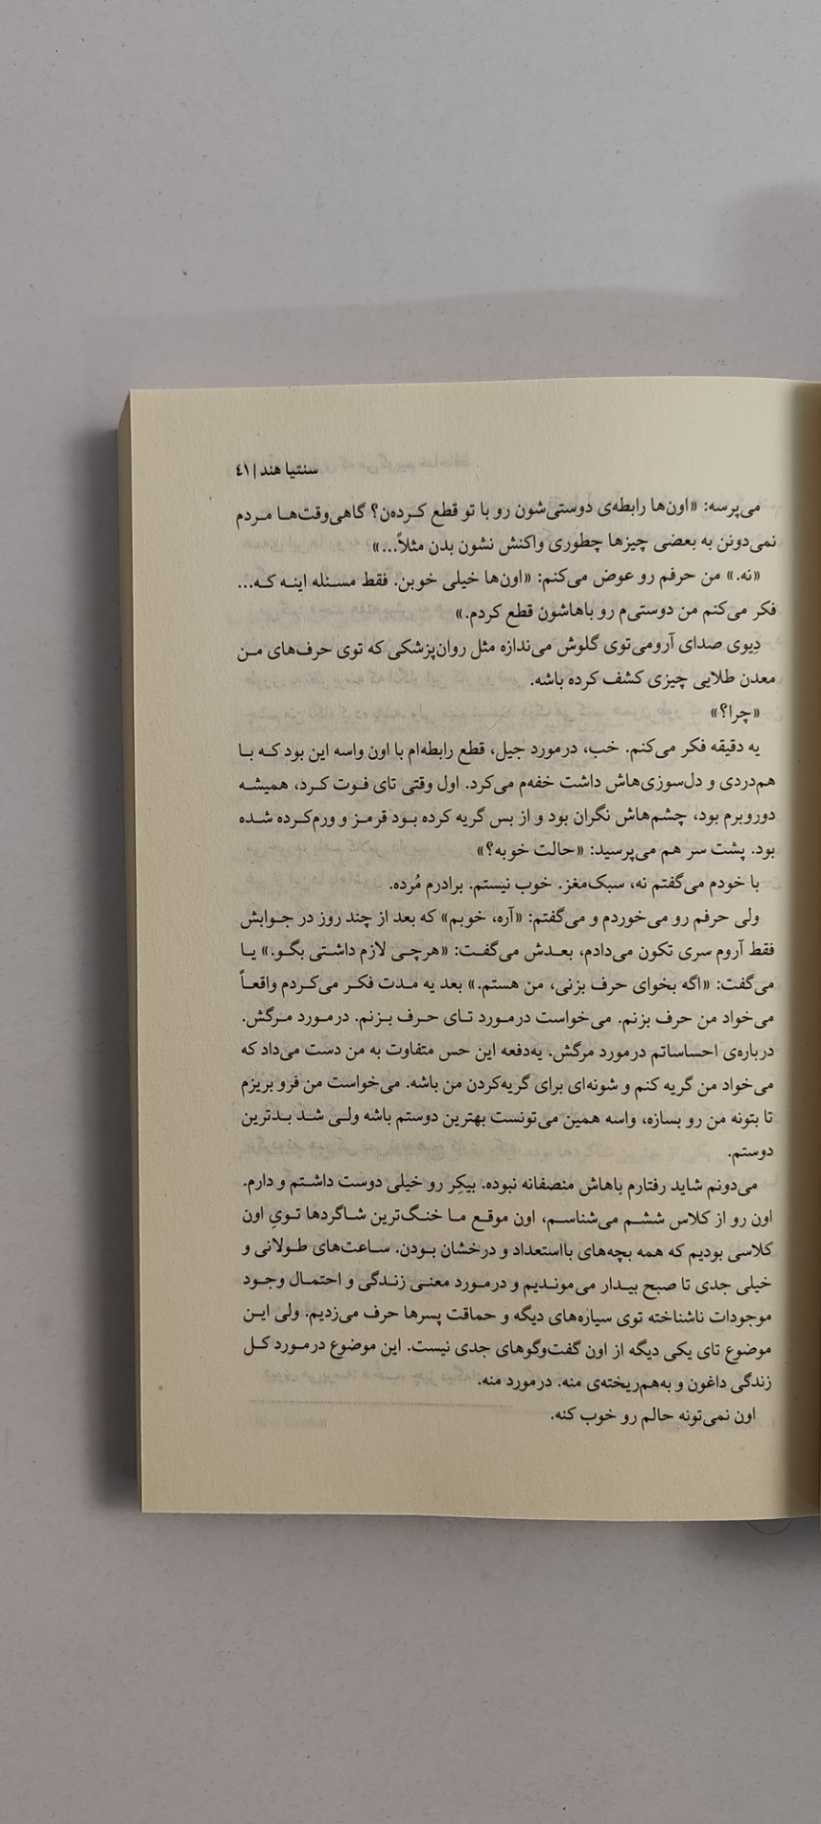 سنتیا هند | ۴۱
می‌پرسه: «اون‌ها رابطه‌ی دوستی‌شون رو با تو قطع کرده‌ن؟ گاهی‌وقت‌ها مردم
نمی‌دونن به بعضی چیزها چطوری واکنش نشون بدن مثلاً...»
«نه.» من حرفم رو عوض می‌کنم: «اون‌ها خیلی خوبن. فقط مسئله اینه که...
فکر می‌کنم من دوستی‌م رو باهاشون قطع کردم.»
دِیوی صدای آرومی توی گلوش می‌ندازه مثل روان‌پزشکی که توی حرف‌های من
معدن طلایی چیزی کشف کرده باشه.
«چرا؟»
یه دقیقه فکر می‌کنم. خب، درمورد جیل، قطع رابطه‌ام با اون واسه این بود که با
هم‌دردی و دل‌سوزی‌هاش داشت خفه‌م می‌کرد. اول وقتی تای فوت کرد، همیشه
دوروبرم بود، چشم‌هاش نگران بود و از بس گریه کرده بود قرمز و ورم‌کرده شده
بود. پشت سر هم می‌پرسید: «حالت خوبه؟»
با خودم می‌گفتم نه، سبک‌مغز. خوب نیستم. برادرم مُرده.
ولی حرفم رو می‌خوردم و می‌گفتم: «آره، خوبم» که بعد از چند روز در جوابش
فقط آروم سری تکون می‌دادم، بعدش می‌گفت: «هرچی لازم داشتی بگو.» یا
می‌گفت: «اگه بخوای حرف بزنی، من هستم.» بعد یه مدت فکر می‌کردم واقعاً
می‌خواد من حرف بزنم. می‌خواست درمورد تای حرف بزنم. درمورد مرگش.
درباره‌ی احساساتم درمورد مرگش. یه‌دفعه این حس متفاوت به من دست می‌داد که
می‌خواد من گریه کنم و شونه‌ای برای گریه‌کردن من باشه. می‌خواست من فرو بریزم
تا بتونه من رو بسازه، واسه همین می‌تونست بهترین دوستم باشه ولی شد بدترین
دوستم.
می‌دونم شاید رفتارم باهاش منصفانه نبوده. بیکِر رو خیلی دوست داشتم و دارم.
اون رو از کلاس ششم می‌شناسم، اون موقع ما خنگ‌ترین شاگردها تویِ اون
کلاسی بودیم که همه بچه‌های بااستعداد و درخشان بودن. ساعت‌های طولانی و
خیلی جدی تا صبح بیدار می‌موندیم و درمورد معنی زندگی و احتمال وجود
موجودات ناشناخته توی سیاره‌های دیگه و حماقت پسرها حرف می‌زدیم. ولی این
موضوع تای یکی دیگه از اون گفت‌وگوهای جدی نیست. این موضوع درمورد کل
زندگی داغون و به‌هم‌ریخته‌ی منه. درمورد منه.
اون نمی‌تونه حالم رو خوب کنه.